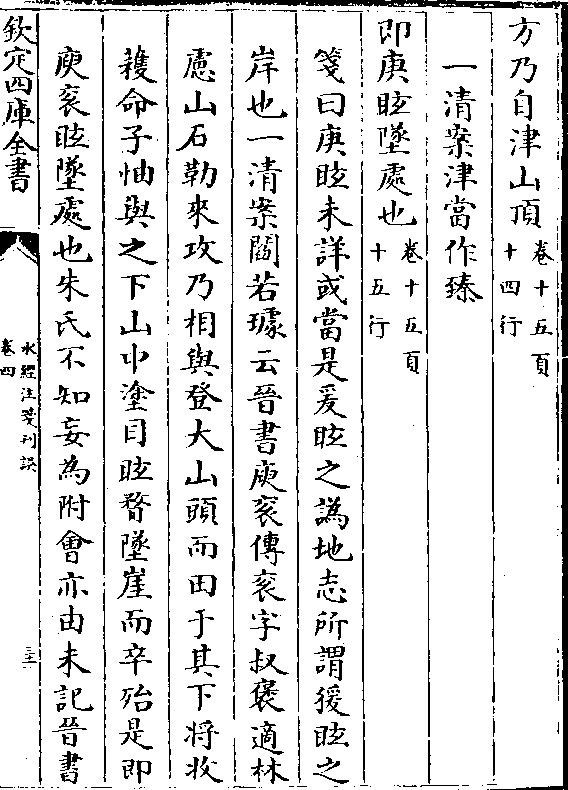 方乃自津山頂卷十五頁十四行
一清案津當作臻
即庚眩墜處也卷十五頁十五行
箋曰庚眩未詳或當是爰眩之譌地志所謂猨眩之
岸也一清案閻若璩云晉書庾衮傳衮字叔褒適林
慮山石勒來攻乃相與登大山頭而田于其下將收
穫命子怞與之下山中塗目眩瞀墜崖而卒殆是即
庾衮眩墜處也朱氏不知妄為附會亦由未記晉書
欽定四庫全書
水經注箋刊誤
卷四
三十二